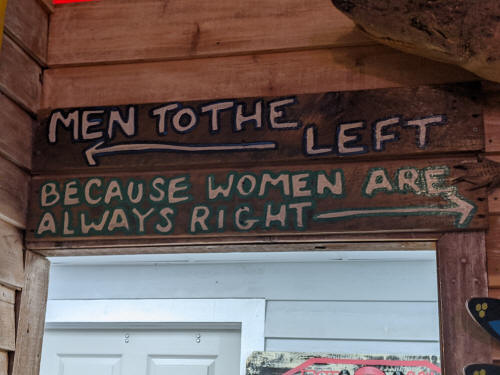 MEN TO THE LEFT
BECAUSE WOMEN ARE
ALWAYS RIGHT